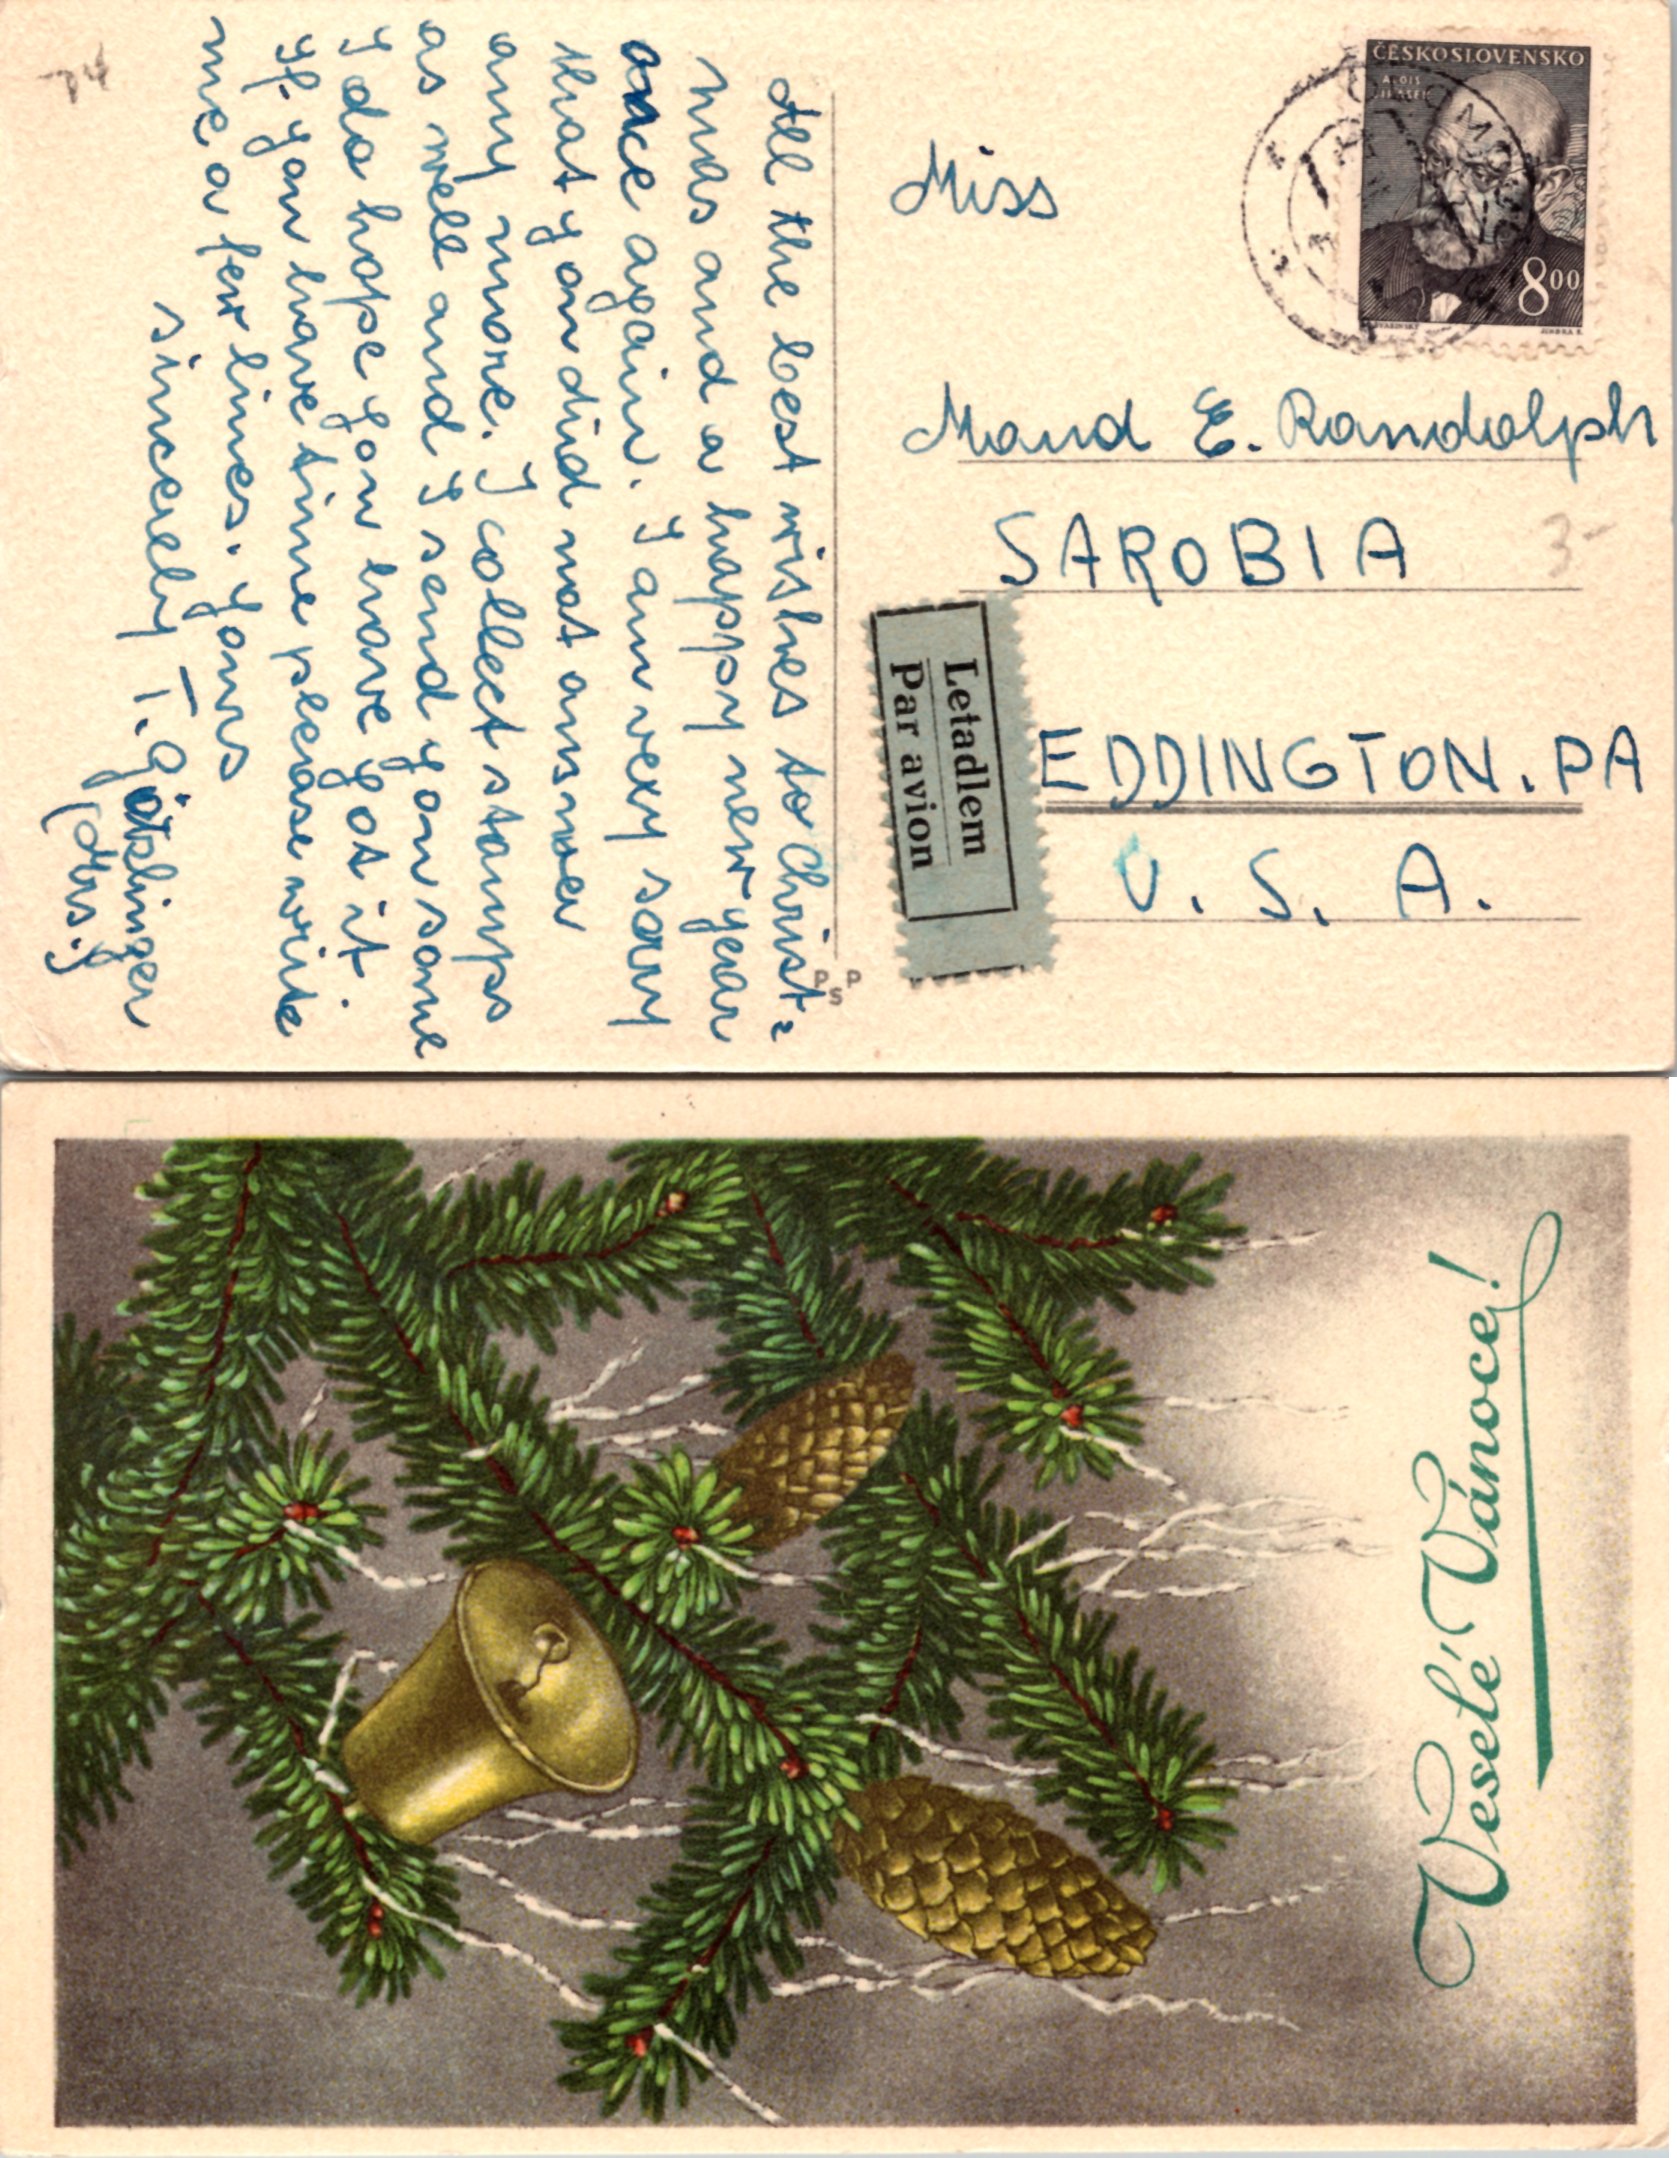 All the best wishes to Christ=
mas and a happy new year
once again. I am very sorry
that you did not answer
any more. I collect stamps
as well and I send you some
I do hope you have got it.
If you have time please write
me a few lines. Yours
sincerely T. Götzlinger
(Mrs.)
74
ČESKOSLOVENSKO
ALOIS
JIRÁSEK
8 00
Miss
Maud E. Randolph
SAROBIA
3-
EDDINGTON. PA
U. S. A.
Letadlem
Par avion
PSP
Veselé Vánoce!